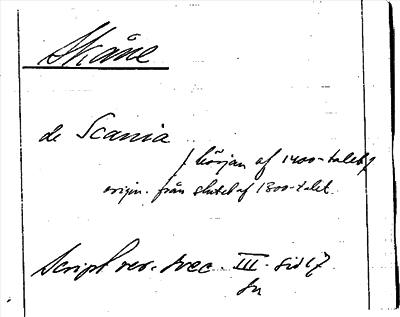 Skåne
de Scania
/ början af 1400-talet /
origin. från slutet af 1300-talet.
Script rer. svec. III. sid 7